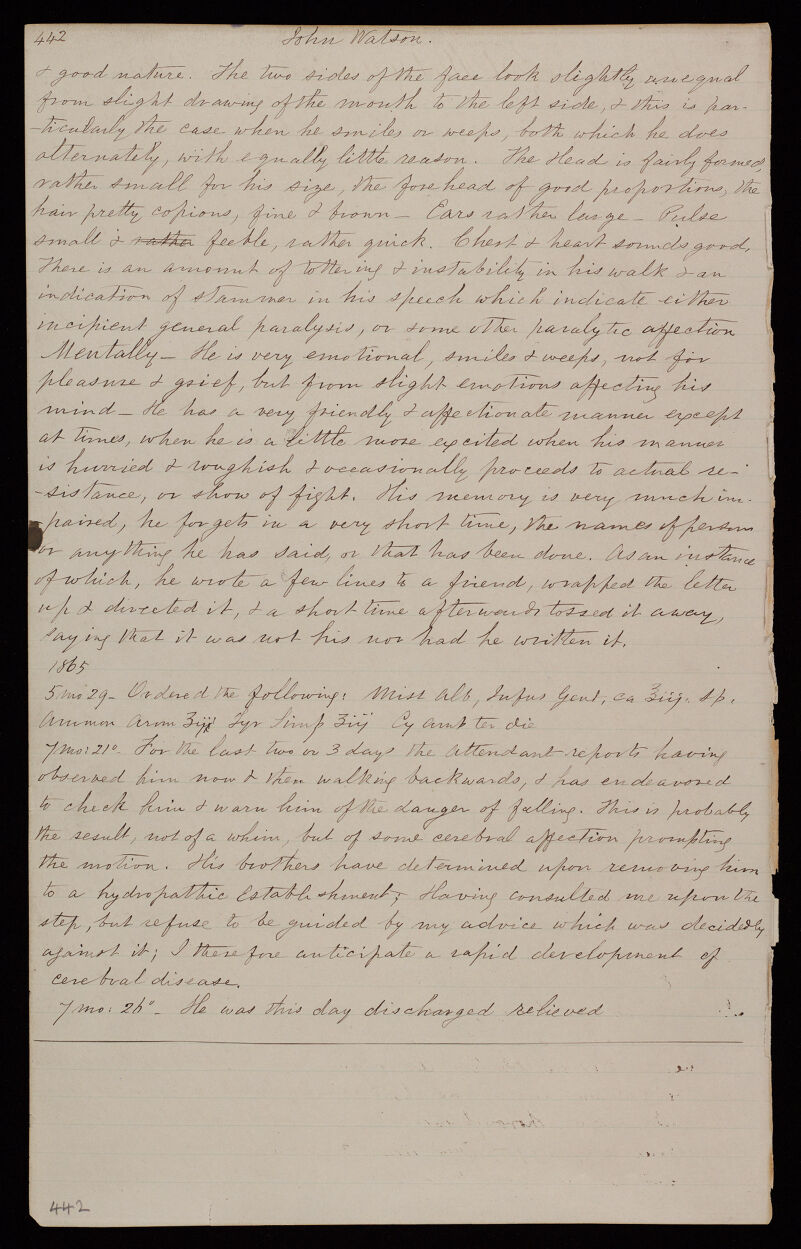 442 John Watson.
& good nature. The two sides of the face look slightly unequal
from slight drawing of the mouth to the left side, & this is par-
-ticularly the case when he smiles or weeps, both which he does
alternately, with equally little reason. The Head is fairly formed,
rather small for his size, the forehead of good proportions, the
hair pretty copious, fine & brown - Ears rather large - Pulse
small & rather feeble, rather quick. Chest & heart sounds good.
There is an amount of tottering & instability in his walk & an
indication of stammer in his speech which indicate either
incipient general paralysis, or some other paralytic affection
Mentally - He is very emotional, smiles & weeps, not for
pleasure & grief, but from slight emotions affecting his
mind - He has a very friendly & affectionate manner except
at times, when he is a little more excited when his manner
is hurried & roughish & occasionally proceeds to actual re-
-sistance, or show of fight. His memory is very much im-
-paired, he forgets in a very short time, the names of persons
or anything he has said, or that has been done. As an instance
of which, he wrote a few lines to a friend, wrapped the letter
up & directed it, & a short time afterwards tossed it away,
saying that it was not his nor had he written it.
1865
5 mo 29 - Ordered the following: Mist Alb, Infus Gent, ea ʒiij. Sp.
Ammon Arom ʒiij Syr Simp ʒiij Cy Amt ter die
7 mo: 21º - For the last two or 3 days the attendant reports having
observed him now & then walking backwards, & has endeavored
to check him & warn him of the danger of falling. This is probably
the result, not of a whim, but of some cerebral affection prompting
the motion. His brothers have determined upon removing him
to a hydropathic Establishment; Having consulted me upon the
step, but refuse to be guided by my advice which was decidedly
against it; I therefore anticipate a rapid development of
cerebral disease.
7 mo: 26º - He was this day discharged relieved
442